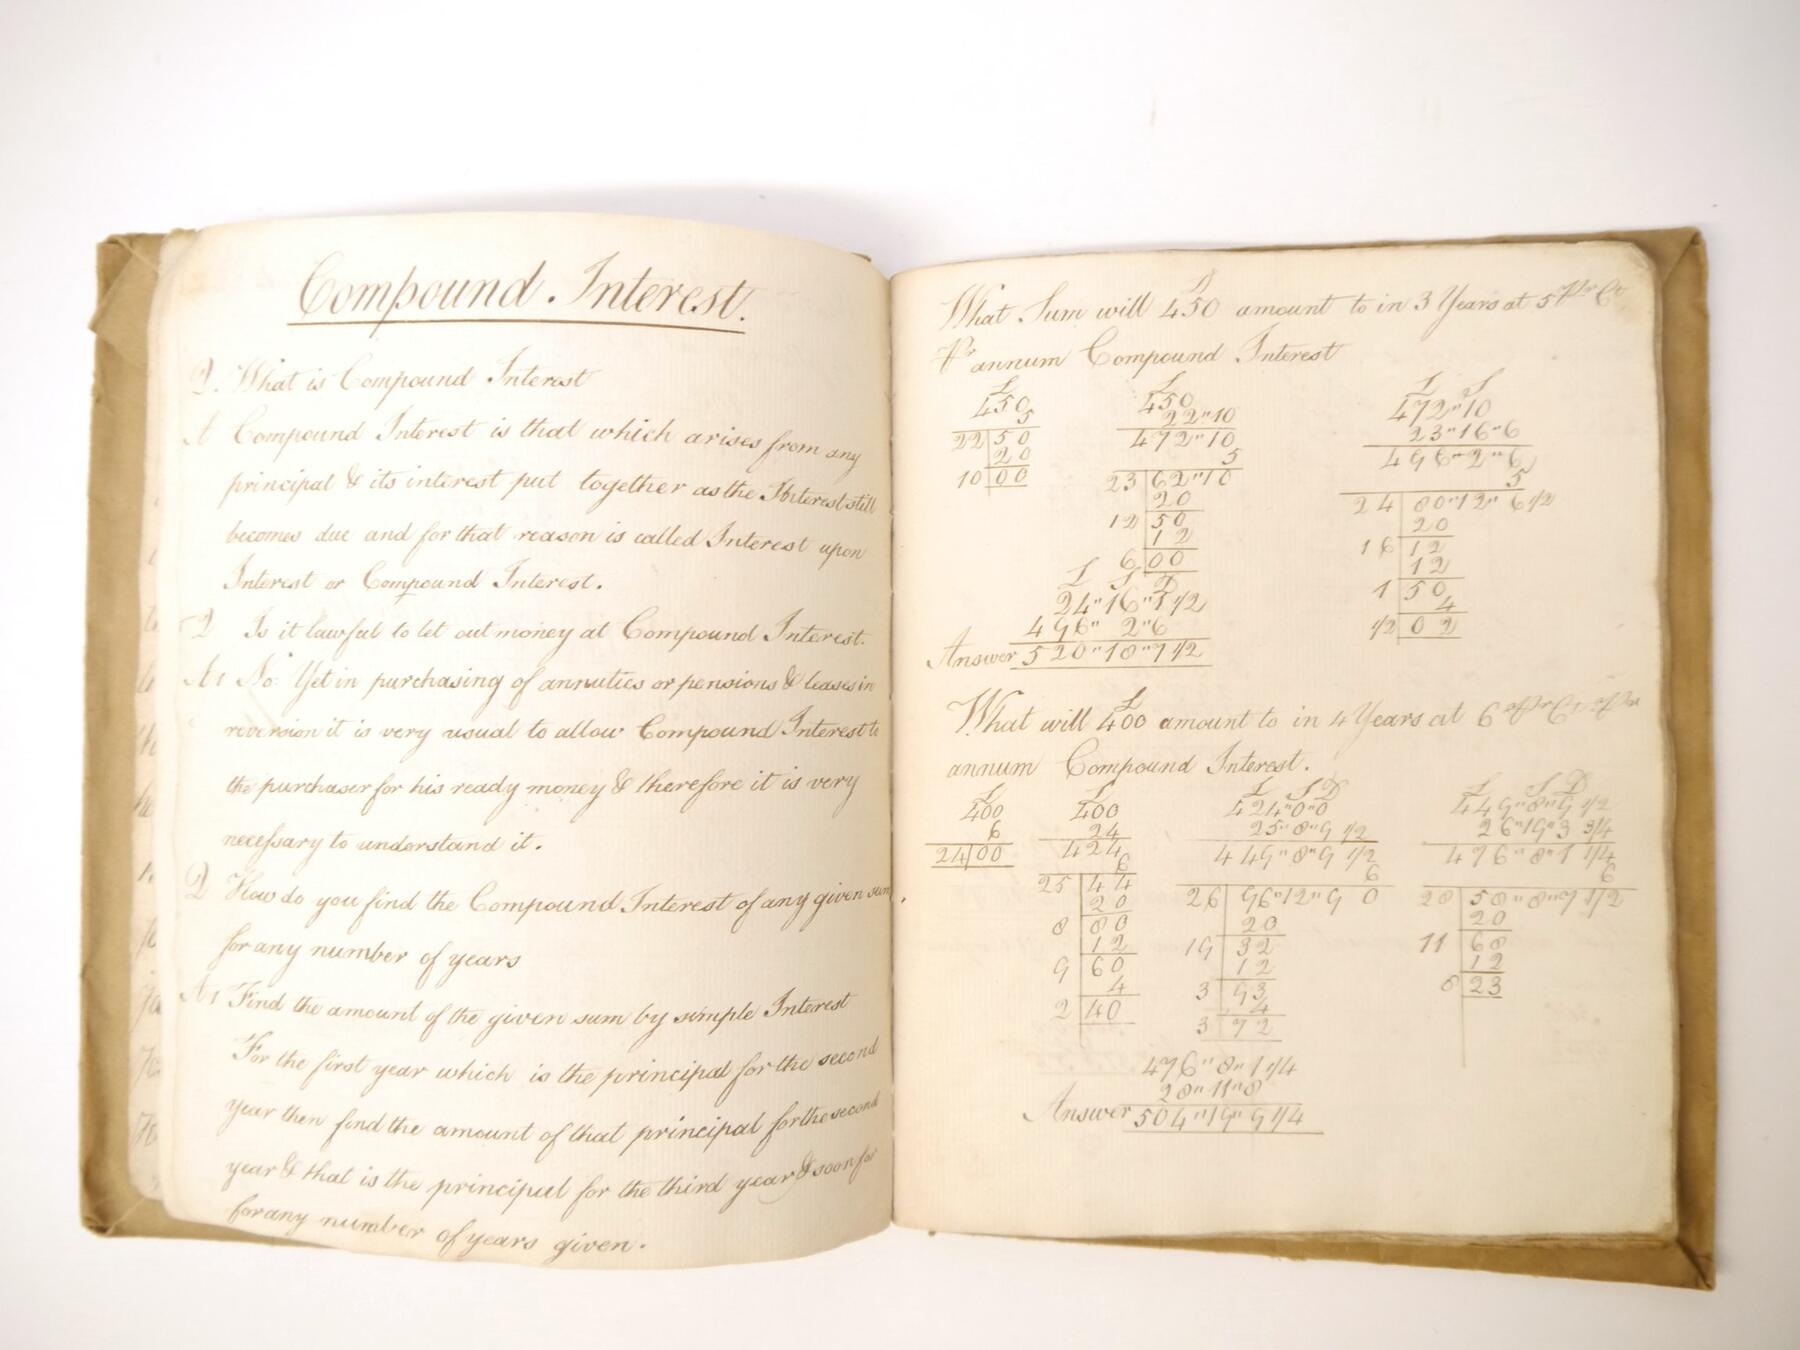 Compound Interest.
Q. What is Compound Interest
A Compound Interest is that which arises from any
principal & its interest put together as the Interest still
becomes due and for that reason is called Interest upon
Interest or Compound Interest.
Q Is it lawful to let out money at Compound Interest.
A: No: Yet in purchasing of annuties or pensions & leases in
reversion it is very usual to allow Compound Interest to
the purchaser for his ready money & therefore it is very
necessary to understand it.
Q How do you find the Compound Interest of any given sum
for any number of years
A: Find the amount of the given sum by simple Interest
For the first year which is the principal for the second
year then find the amount of that principal for the second
year & that is the principal for the third year & so on for
for any number of years given.
What Sum will £450 amount to in 3 Years at 5 Pr Ct
Pr annum Compound Interest
£ £ £ S
450 450 472"10
5 22"10 23"16"6
22|50 472"10 496"2"6
20 5 5
10|00 23|62"10 24|80"12"6 1/2
20 20
12|50 16|12
12 12
6|00 1|50
£ S D 4
24"16"1 1/2 1/2|02
496"2"6
Answer 520"18"7 1/2
What will £400 amount to in 4 Years at 6 Pr Ct Pr
annum Compound Interest.
£ £ £ S D £ S D
400 400 424"0"0 449"8"9 1/2
6 24 25"8"9 1/2 26"19"3 3/4
24|00 424 449"8"9 1/2 476"8"1 1/4
6 6 6
25|44 26|96"12"9 0 28|58"8"7 1/2
20 20 20
8|80 19|32 11|68
12 12 12
9|60 3|93 8|23
4 4
2|40 3|72
476"8"1 1/4
28"11"8
Answer 504"19"9 1/4